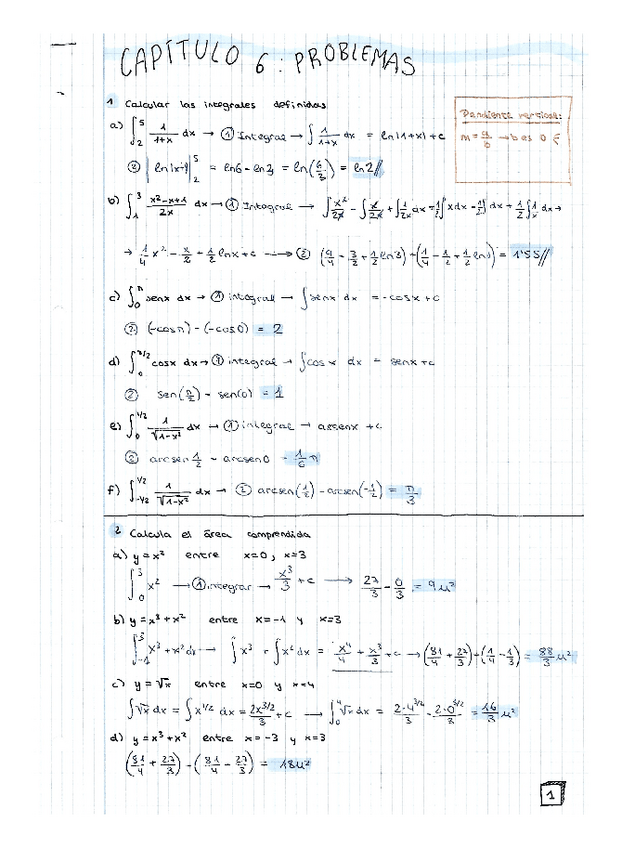 CAPÍTULO 6: PROBLEMAS
1 Calcular las integrales definidas
Pendiente vertical:
m = a/b → b es 0
a) ∫₂⁵ 1/(1+x) dx → ① Integral → ∫ 1/(1+x) dx = ln|1+x| + c
② = ln6 - ln3 = ln(6/3) = ln2//
b) ∫₁³ (x²-x+1)/2x dx → ① Integral → ∫ x²/2x - ∫ x/2x + ∫ 1/2x dx = 1/2 ∫ x dx - 1/2 ∫ dx + 1/2 ∫ 1/x dx →
→ 1/4 x² - x/2 + 1/2 lnx + c → ② (9/4 - 3/2 + 1/2 ln3) - (1/4 - 1/2 + 1/2 ln1) = 1'55//
c) ∫₀^π senx dx → ① integral → ∫ senx dx = -cosx + c
② (-cosπ) - (-cos0) = 2
d) ∫₀^π/2 cosx dx → ① integral → ∫ cosx dx = senx + c
② sen(π/2) - sen(0) = 1
e) ∫₀^1/2 1/√(1-x²) dx → ① integral → arcsenx + c
② arcsen 1/2 - arcsen0 = 1/6 π
f) ∫₋₁/₂^1/2 1/√(1-x²) dx → ② arcsen(1/2) - arcsen(-1/2) = π/3
2 Calcula el área comprendida
a) y = x² entre x=0, x=3
∫₀³ x² → ① integrar → x³/3 + c → 27/3 - 0/3 = 9u²
b) y = x³ + x² entre x=-1 y x=3
∫₋₁³ x³ + x² dx → ∫ x³ + ∫ x² dx = x⁴/4 + x³/3 + c → (81/4 + 27/3) - (1/4 - 1/3) = 88/3 u²
c) y = √x entre x=0 y x=4
∫ √x dx = ∫ x^1/2 dx = 2x^3/2/3 + c → ∫₀⁴ √x dx = 2·4^3/2/3 - 2·0^3/2/3 = 16/3 u²
d) y = x³ + x² entre x=-3 y x=3
(81/4 + 27/3) - (81/4 - 27/3) = 18u²
1